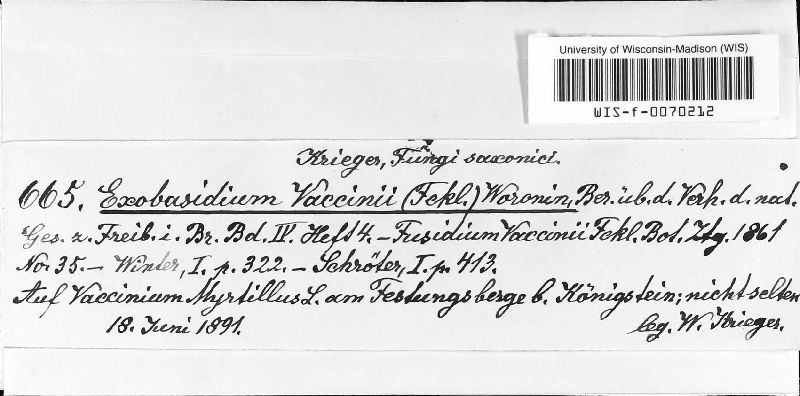 University of Wisconsin-Madison (WIS)
WIS-f-0070212
Krieger, Fungi saxonici.
665. Exobasidium Vaccinii (Fckl.) Woronin, Ber. üb. d. Verh. d. nat.
Ges. z. Freib. i. Br. Bd. IV. Heft 4. – Fusidium Vaccinii Fckl. Bot. Ztg. 1861
No. 35. – Winter, I. p. 322. – Schröter, I. p. 413.
Auf Vaccinium Myrtillus L. am Festungsberge b. Königstein; nicht selten
18. Juni 1891. leg. W. Krieger.